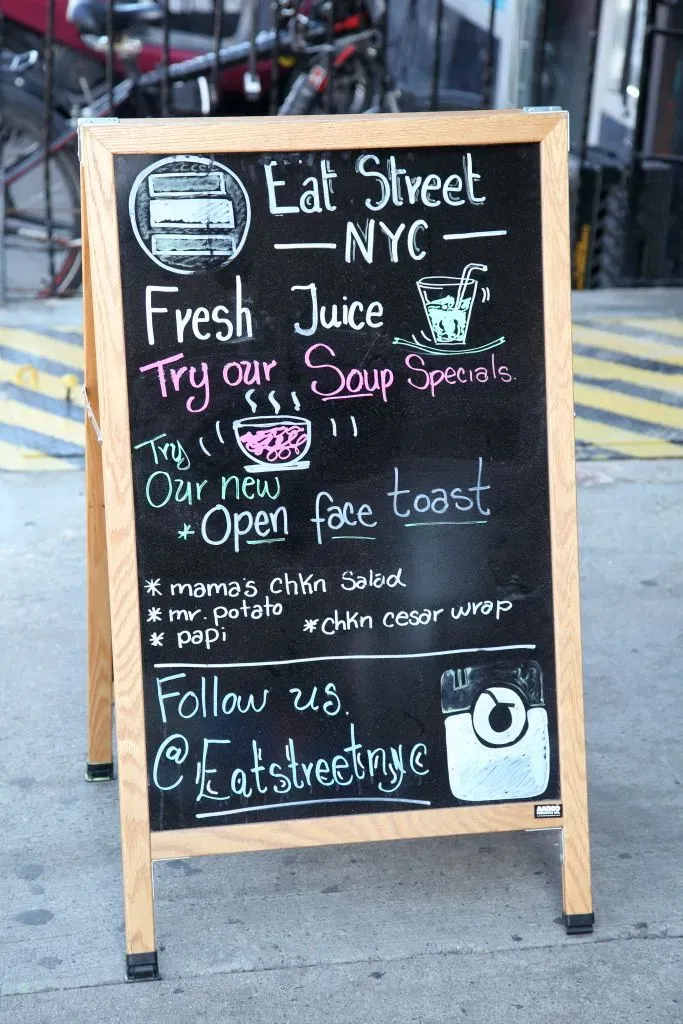 Eat Street
— NYC —
Fresh Juice
Try our Soup Specials.
Try
Our new
* Open face toast
* mama's chkn Salad
* mr. potato
* chkn cesar wrap
* papi
Follow us.
@Eatstreetnyc